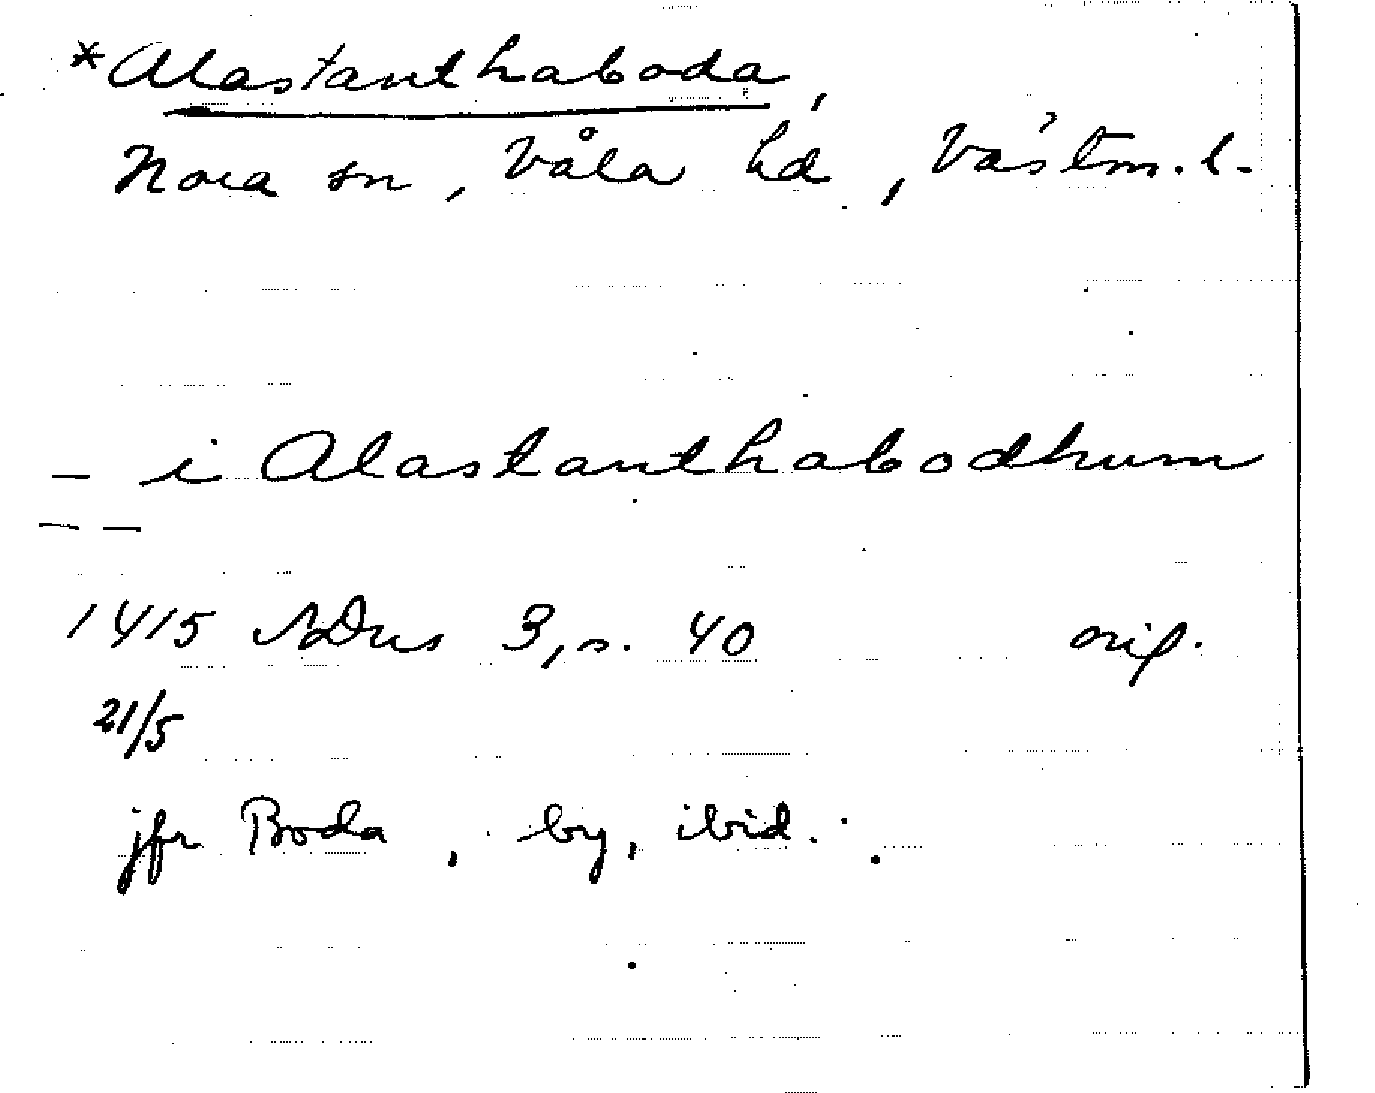 *Alastanthaboda,
Nora sn, Våla hd, Västm. l.
- i Alastanthabodhum
- -
1415 SDns 3, s. 40 orig.
21/5
jfr Boda, by, ibid.